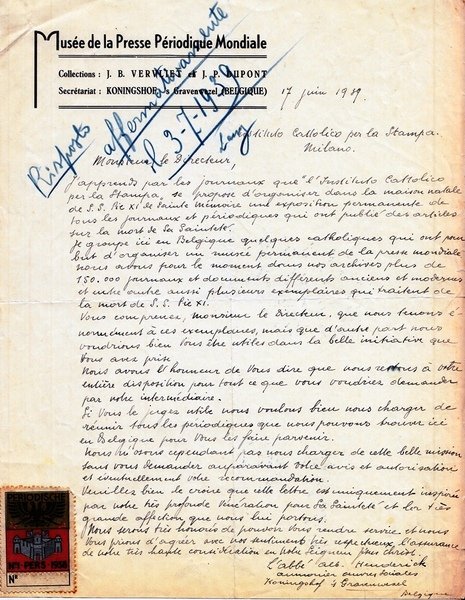 Musée de la Presse Périodique Mondiale
Collections : J. B. VERVLIET et J. P. DUPONT
Secrétariat : KONINGSHOF, 's Gravenwezel (BELGIQUE)
Risposto
affermativamente
il 3-7-1939
17 juin 1939.
Instituto Cattolico per la Stampa.
Milano.
Monsieur le Directeur,
J'apprends par les journaux que "l'Instituto Cattolico
per la Stampa, se propose d'organiser dans la maison natale
de S.S. Pie XI de Sainte mémoire une exposition permanente de
tous les journaux et périodiques qui ont publié des articles
sur la mort de Sa Sainteté.
Je groupe ici en Belgique quelques catholiques qui ont pour
but d'organiser un musée permanent de la presse mondiale
nous avons pour le moment dans nos archives plus de
150.000 journaux et documents différents anciens et modernes
et entre autre plusieurs exemplaires qui traitent de
la mort de S.S. Pie XI.
Vous comprenez, monsieur le Directeur, que nous tenons é-
normément à ces exemplaires, mais que d'autre part nous
voudrions bien Vous être utiles dans la belle initiative que
Vous avez prise.
Nous avons l'honneur de Vous dire que nous restons à votre
entière disposition pour tout ce que vous voudriez demander
par notre intermédiaire.
Si Vous le jugez utile nous voulons bien nous charger de
réunir tous les périodiques que nous pouvons trouver ici
en Belgique pour Vous les faire parvenir.
Nous n'osons cependant pas nous charger de cette belle mission
sans vous demander auparavant Votre avis et autorisation
et éventuellement votre recommandation.
Veuillez bien le croire que cette lettre est uniquement inspirée
par notre très profonde vénération pour Sa Sainteté et la très
grande affection que nous lui portons.
Nous serons très honorés de pouvoir Vous rendre service et nous
Vous prions d'agréer avec nos sentiments très respectueux l'assurance
de notre très haute considération en Notre Seigneur Jésus Christ.
L'abbé alb. Henderick
aumônier œuvres sociales
Koningshof 's Gravenwezel
Belgique
PERS 1936
N°